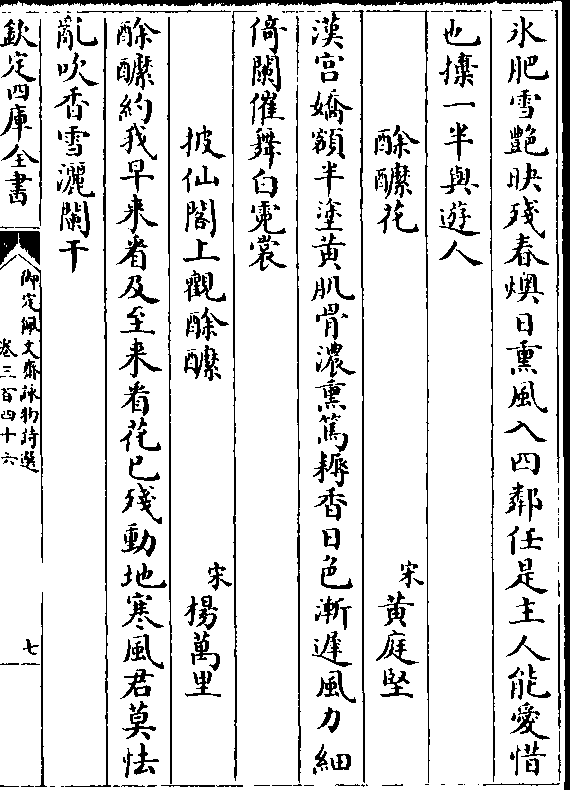 氷肥雪艷映殘春燠日熏風入四鄰任是主人能愛惜
也攓一半與遊人
酴醿花
宋 黃庭堅
漢宮嬌額半塗黃肌骨濃熏篤耨香日色漸遲風力細
倚闌催舞白霓裳
披仙閣上觀酴醿
宋 楊萬里
酴醿約我早来看及至来看花已殘動地寒風君莫怯
亂吹香雪灑闌干
欽定四庫全書
御定佩文齋詠物詩選
卷三百四十六
七